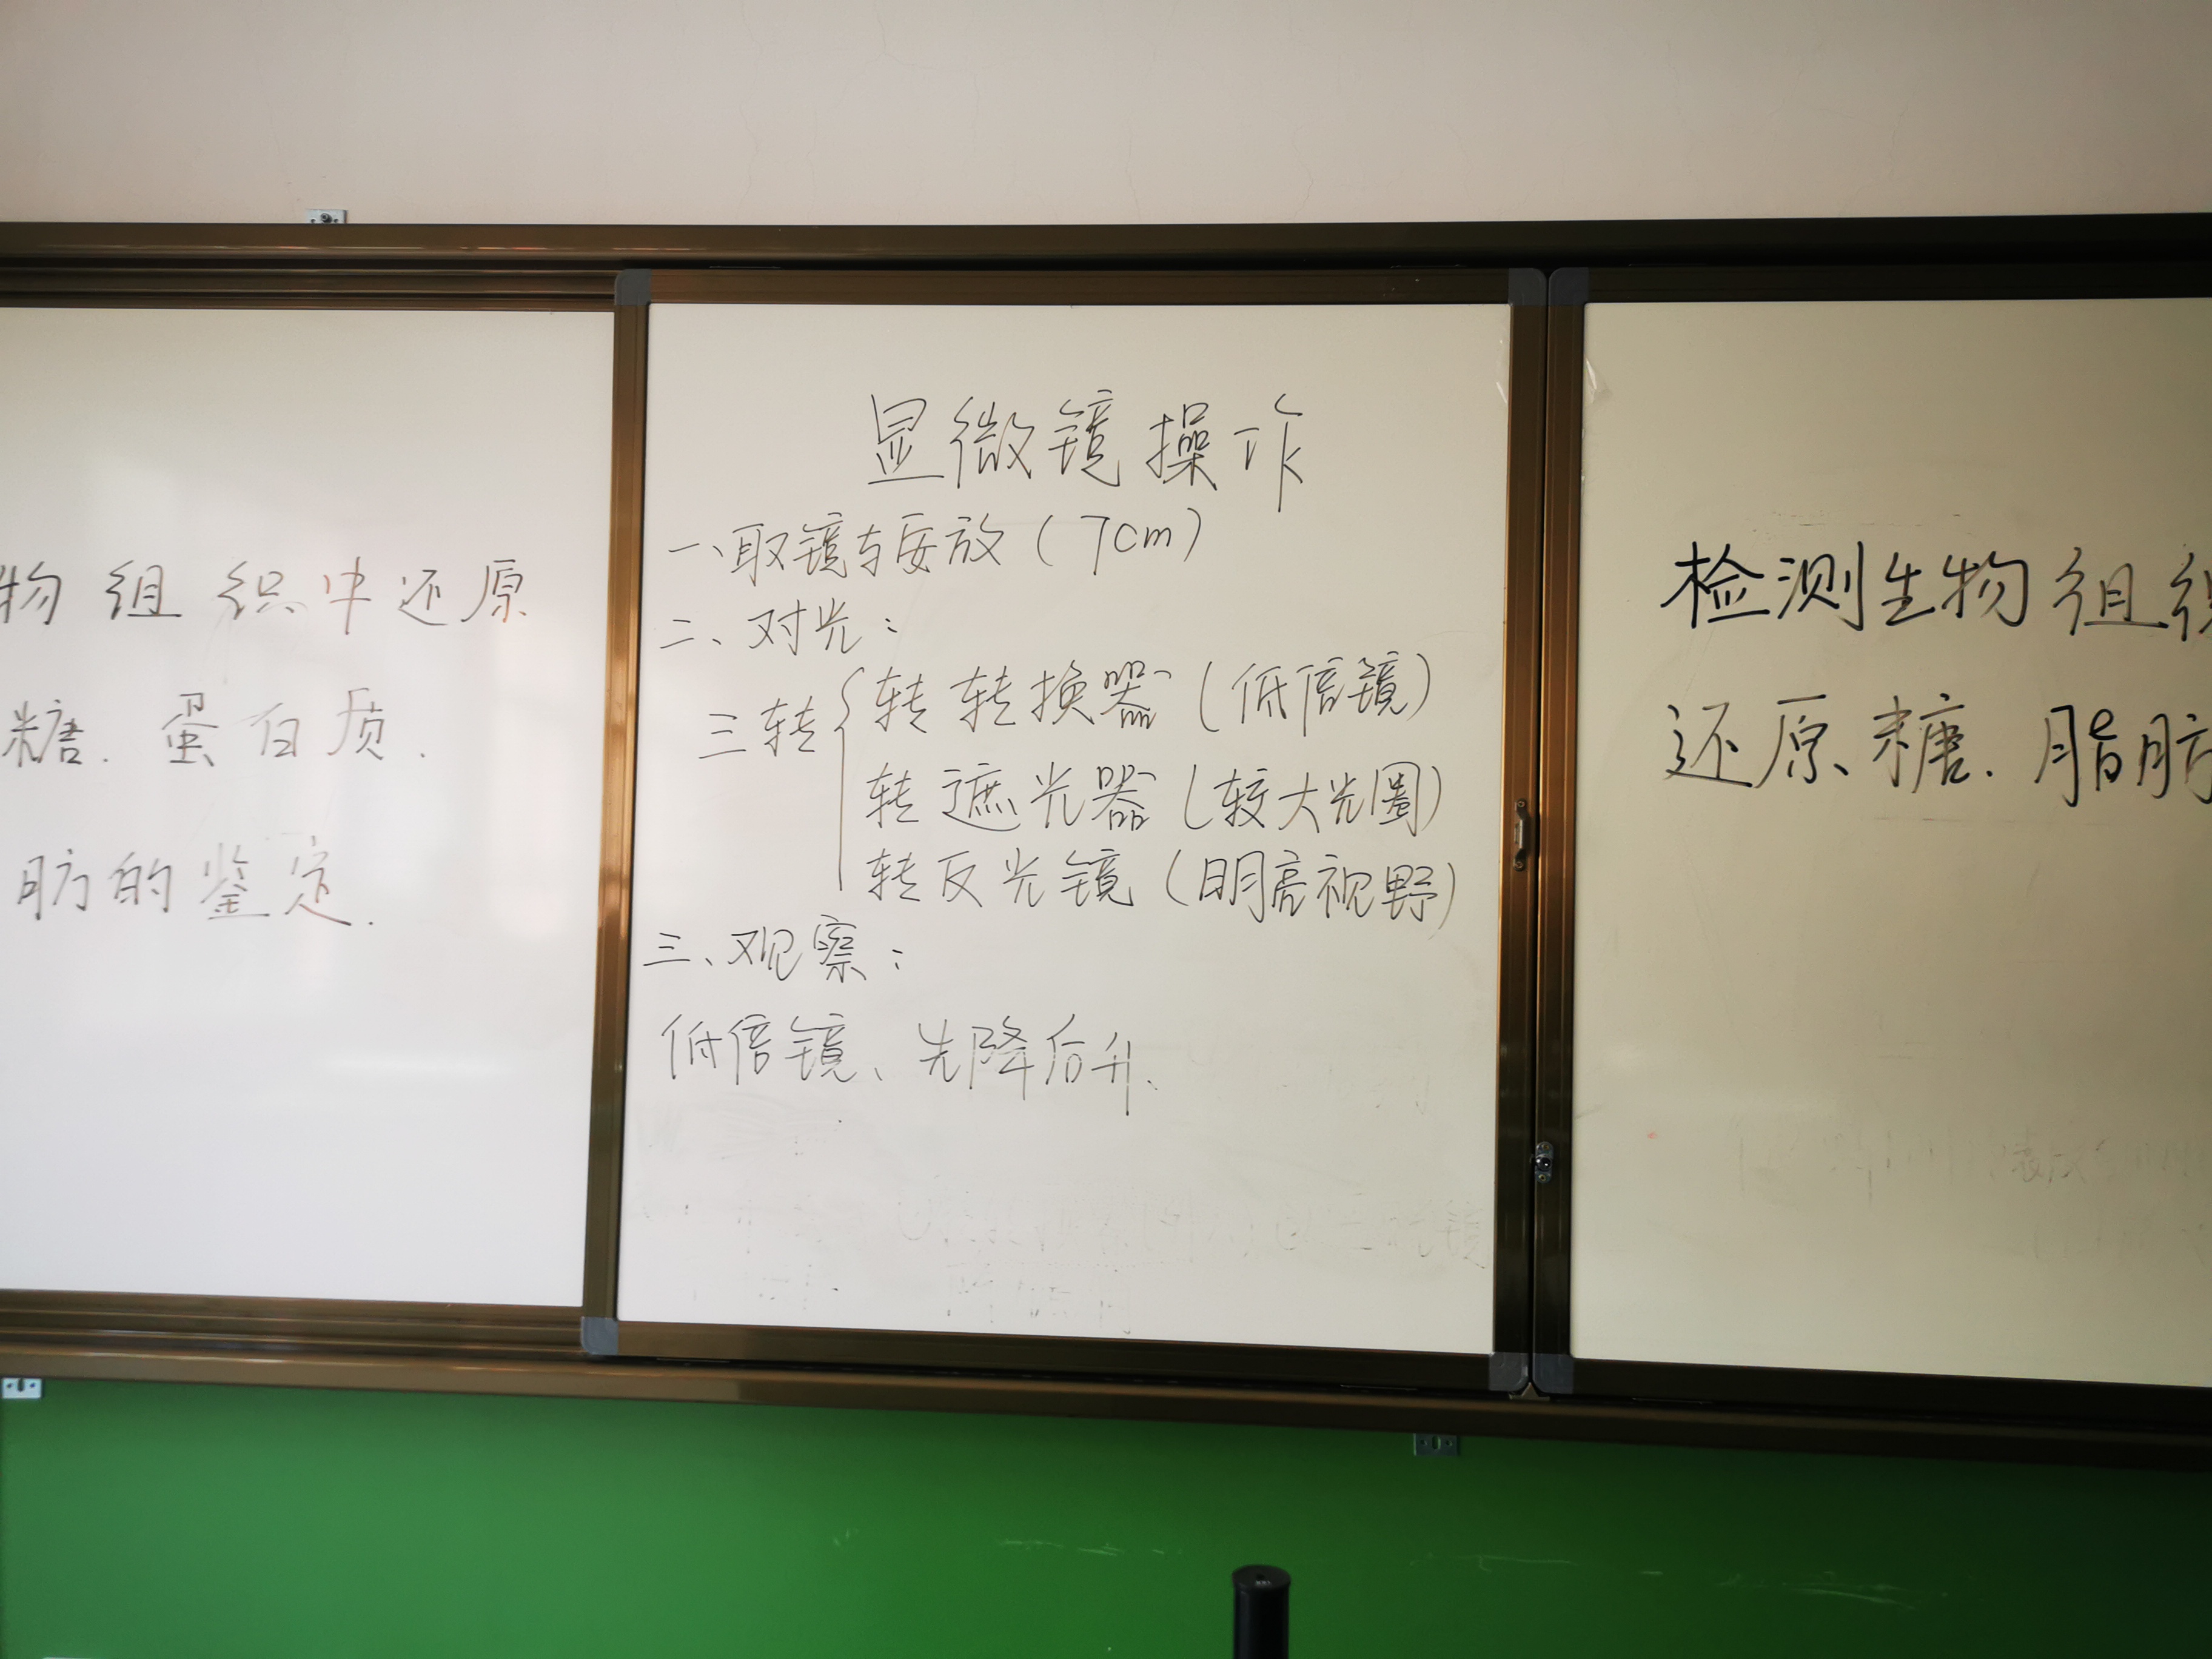 物组织中还原
糖.蛋白质.
肪的鉴定.
显微镜操作
一、取镜与安放(7cm)
二、对光:
三转
转转换器(低倍镜)
转遮光器(较大光圈)
转反光镜(明亮视野)
三、观察:
低倍镜、先降后升、
检测生物组织
还原糖.脂肪